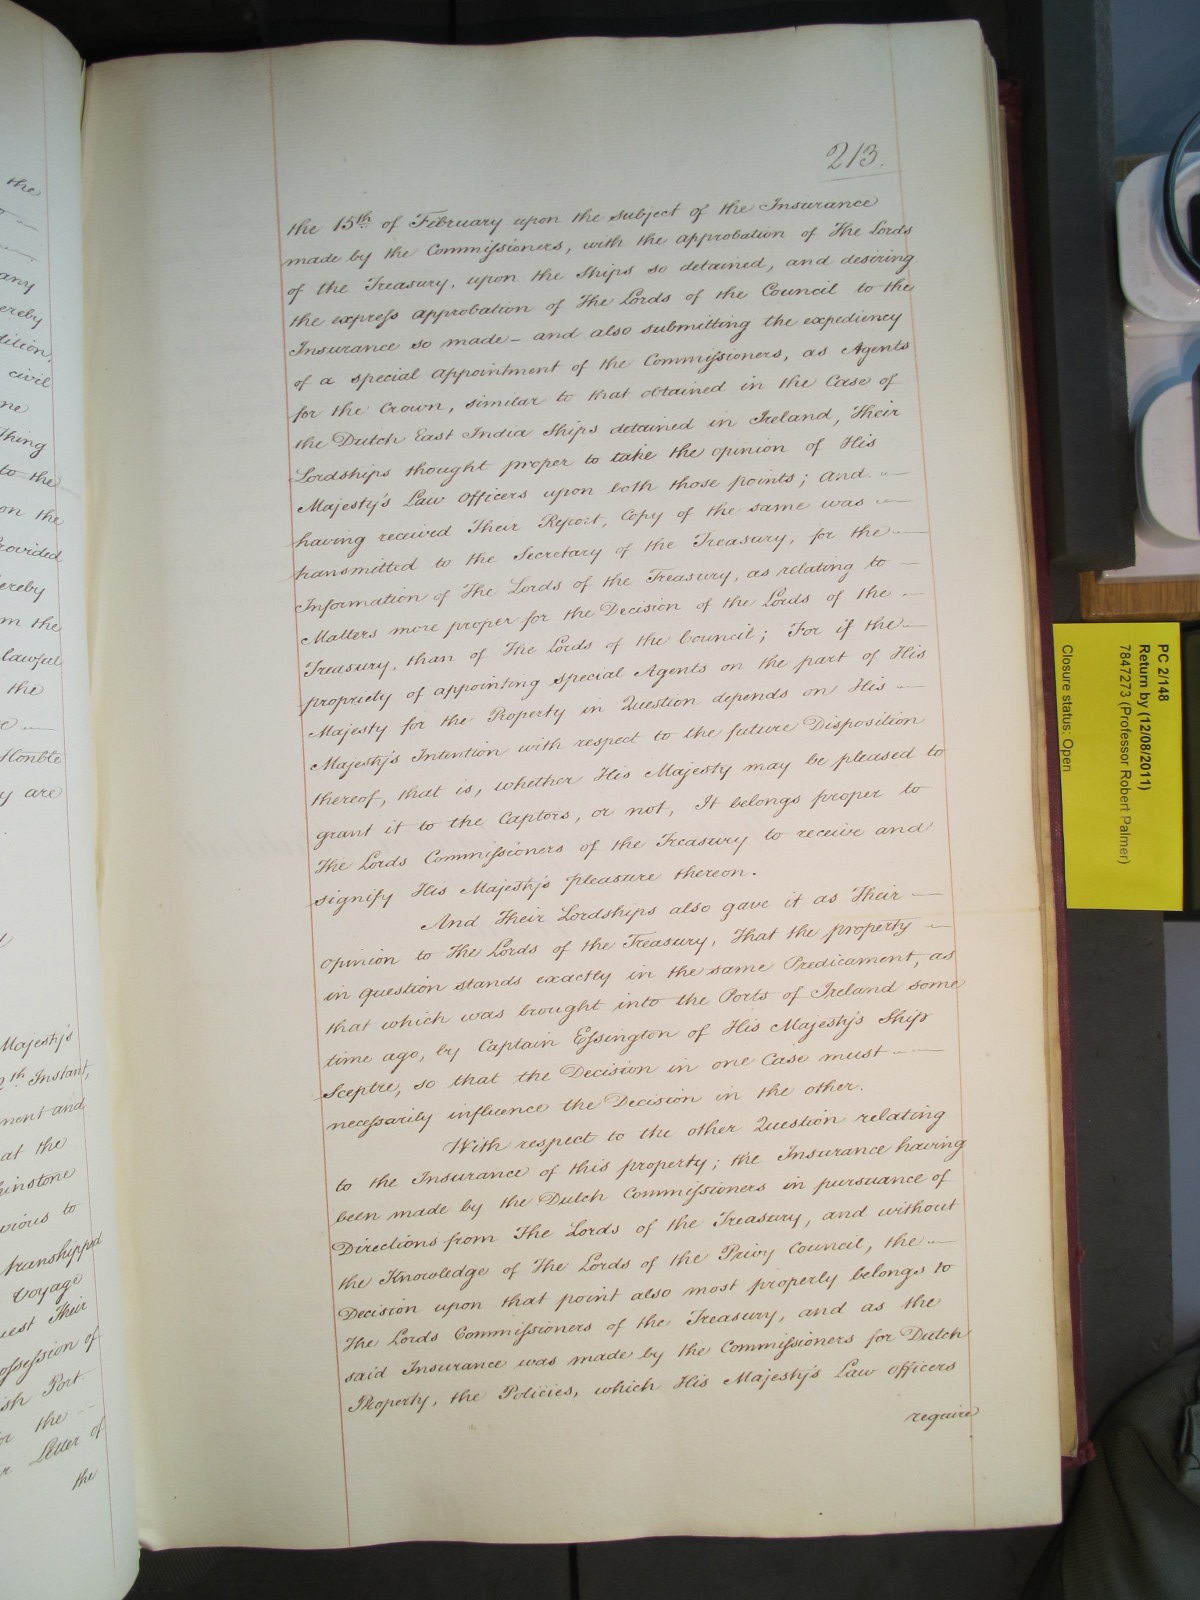 213.
the 15th of February upon the subject of the Insurance
made by the Commissioners, with the approbation of The Lords
of the Treasury, upon the Ships so detained, and desiring
the express approbation of The Lords of the Council to the
Insurance so made – and also submitting the expediency
of a special appointment of the Commissioners, as Agents
for the Crown, similar to that obtained in the Case of
the Dutch East India Ships detained in Ireland, Their
Lordships thought proper to take the opinion of His
Majesty's Law Officers upon both those points; And
having received Their Report, Copy of the same was
transmitted to the Secretary of the Treasury, for the
Information of The Lords of the Treasury, as relating to
Matters more proper for the Decision of the Lords of the
Treasury, than of The Lords of the Council; For if the
propriety of appointing special Agents on the part of His
Majesty for the Property in Question depends on His
Majesty's Intention with respect to the future Disposition
thereof, that is, whether His Majesty may be pleased to
grant it to the Captors, or not, It belongs proper to
The Lords Commissioners of the Treasury to receive and
signify His Majesty's pleasure thereon.
And Their Lordships also gave it as Their
opinion to The Lords of the Treasury, That the property
in question stands exactly in the same Predicament, as
that which was brought into the Ports of Ireland some
time ago, by Captain Essington of His Majesty's Ship
Sceptre, so that the Decision in one Case must
necessarily influence the Decision in the other.
With respect to the other Question relating
to the Insurance of this property; the Insurance having
been made by the Dutch Commissioners in pursuance of
Directions from The Lords of the Treasury, and without
the Knowledge of The Lords of the Privy Council, the
Decision upon that point also most properly belongs to
The Lords Commissioners of the Treasury, and as the
said Insurance was made by the Commissioners for Dutch
Property, the Policies, which His Majesty's Law officers
require
the
any
civil
to the
on the
the
y are
Majesty's
Instant,
at the
transhipped
Voyage
Their
Port
the
Letter of
the
PC 2/148
Return by (12/08/2011)
7847273 (Professor Robert Palmer)
Closure status: Open